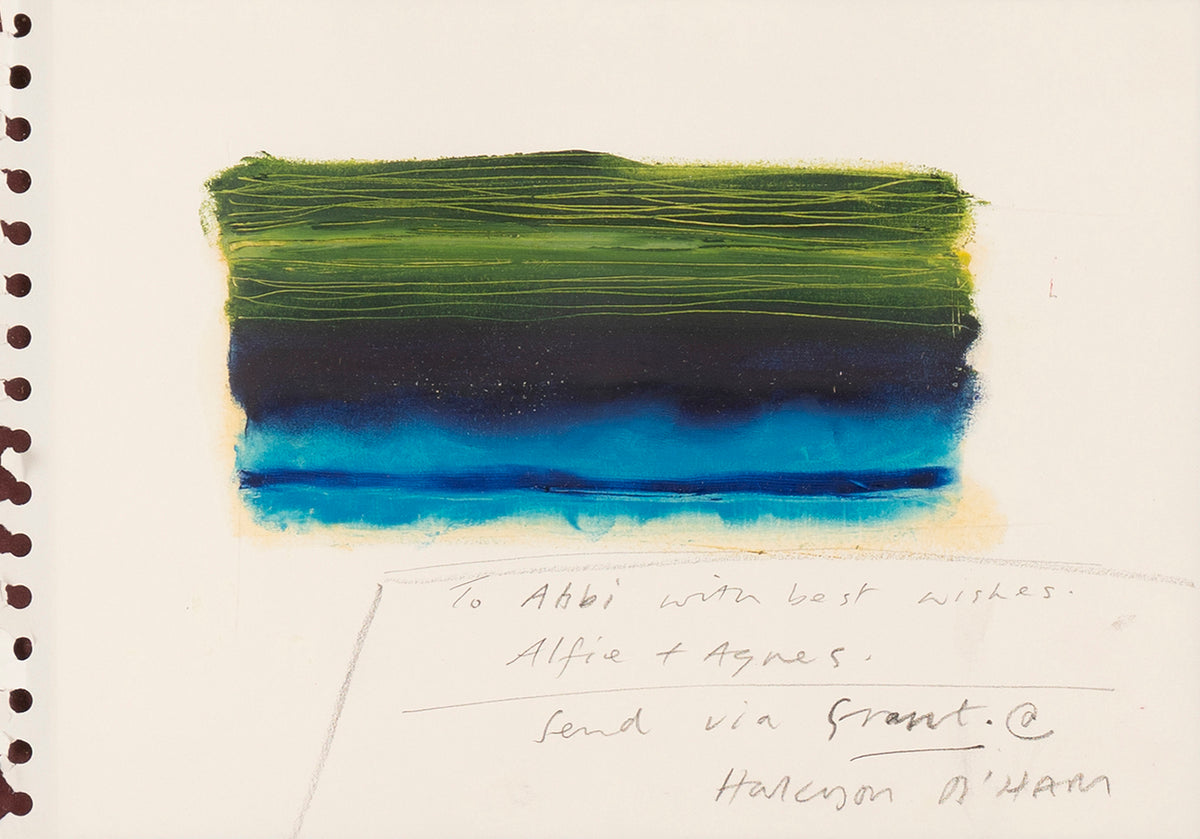 To Abbi with best wishes.
Alfie + Agnes.
Send via Grant. @
Halcyon B'HAM